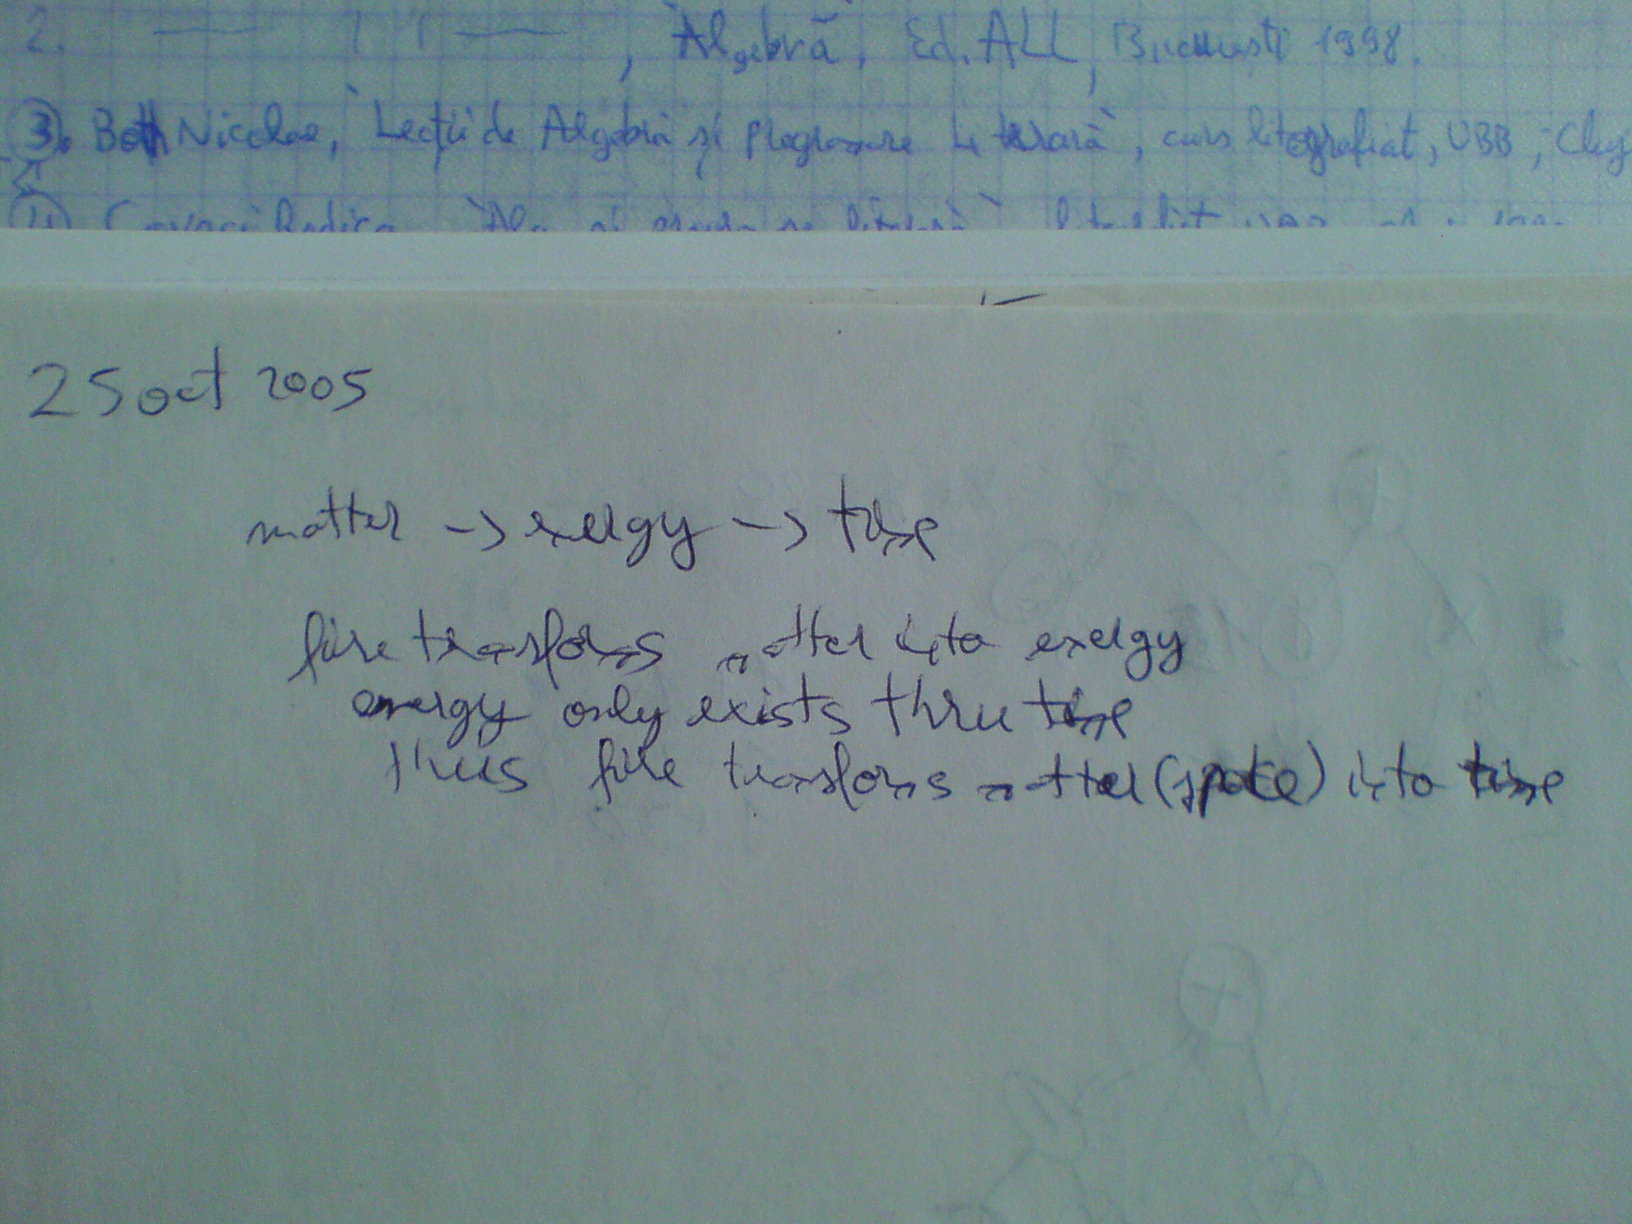 2. —— 11 ——, Algebră, Ed. ALL, Bucuresti 1998.
3. Both Nicolae, Lecții de Algebră și Programare Literară, curs litografiat, UBB, Cluj
25 oct 2005
matter -> energy -> time
fire transforms matter into energy
energy only exists thru time
thus fire transforms matter (space) into time